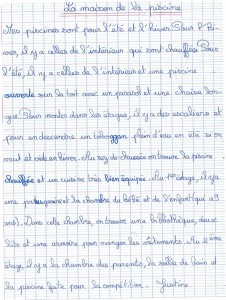 La maison de la piscine
Mes piscines sont pour l'été et l'hiver. Pour l'hi-
ver, il y a celles de l'intérieur qui sont chauffées. Pour
l'été, il y a celles de l'intérieur et une piscine
ouverte sur le toit avec un parasol et une chaise lon-
gue. Pour monter dans les étages, il y a des escaliers et
pour en descendre un toboggan, plein d'eau en été
et vide en hiver. Au rez-de-chaussée on trouve la piscine
chauffée et un cuisine très bien équipée. Au 1er étage, il y a
une et la chambre du bébé et de l'enfant (qui a 3
ans). Dans cette chambre, on trouve une bibliothèque, deux
lits et une armoire pour ranger les vêtements. Au 2ème
étage, il y a la chambre des parents, la salle de bain et
la piscine faite pour la compétition. Justine